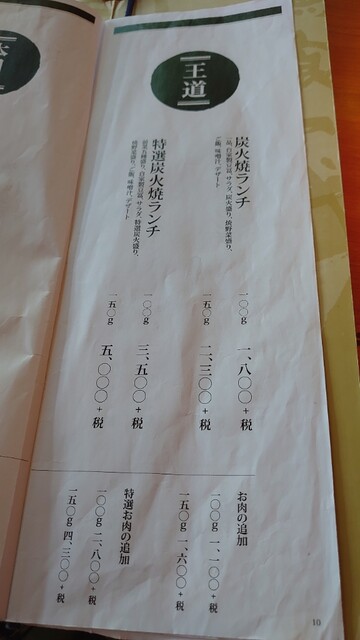 王道
炭火焼ランチ
一品、自家製豆腐、サラダ、炭火盛り、焼野菜盛り、
ご飯、味噌汁、デザート
一〇〇g 一、八〇〇+税
一五〇g 二、三〇〇+税
特選炭火焼ランチ
焼野菜盛り、ご飯、味噌汁、デザート
一〇〇g 三、五〇〇+税
一五〇g 五、〇〇〇+税
お肉の追加
一〇〇g 一、一〇〇+税
一五〇g 一、六〇〇+税
特選お肉の追加
一〇〇g 二、八〇〇+税
一五〇g 四、三〇〇+税
10